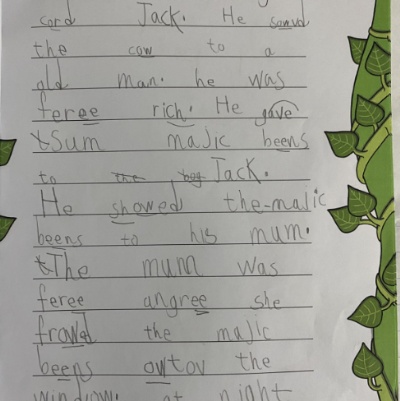 cord Jack. He
the cow to a
old man. he was
feree rich. He gave
Sum majic beens
to the boy Jack.
He showed the majic
beens to his mum.
The mum was
feree angree she
frowd the majic
beens owtov the
window. at night